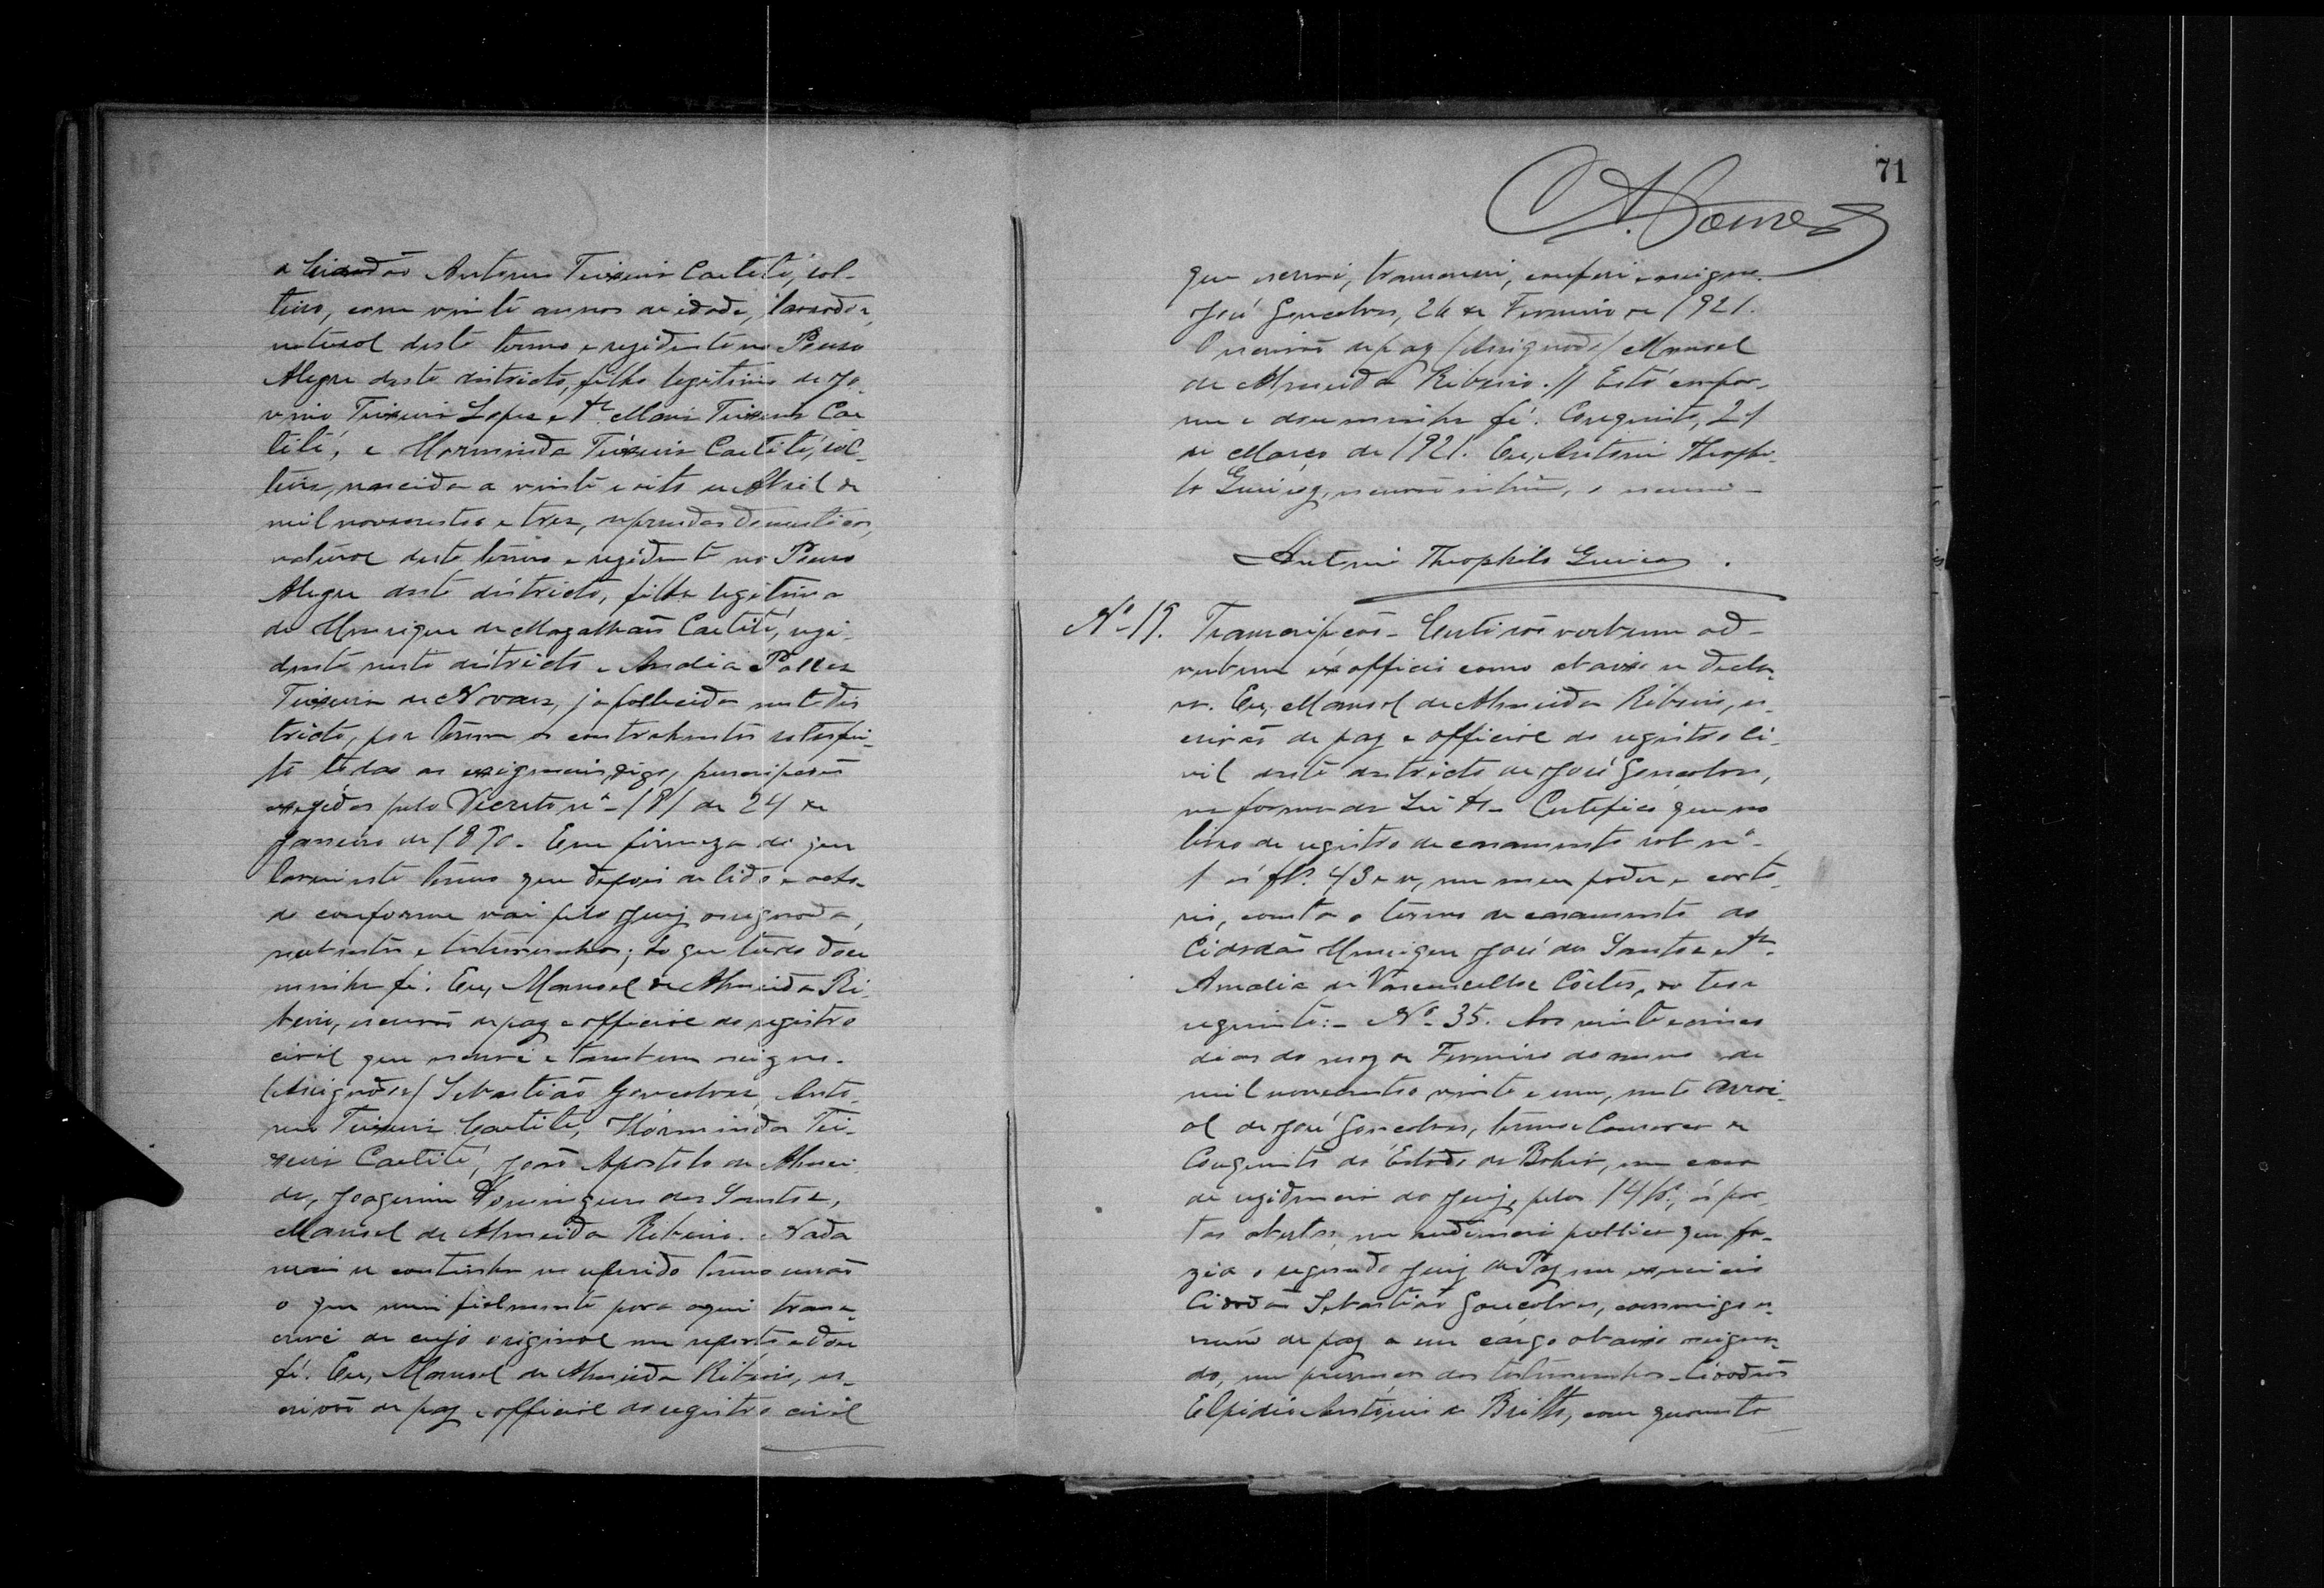 o Cidadão Antonio Teixeira Caetité, sol-
teiro, com vinte annos de idade, lavrador,
natural deste termo e rezidente no Pouso
Alegre deste districto, filho legitimo de Jo-
vino Teixeira Lopes e Maria Teixeira Cae
tité, e Horminda Teixeira Caetité, sol-
teira, nascida a vinte e oito de Abril de
mil novecentos e tres, de prendas domesticas,
natural deste termo e rezidente no Pouso
Alegre deste districto, filha legitima
de Henrique de Magalhães Caetité, rezi-
dente neste districto e Teixeira de Novaes, já fallecida neste dis
tricto, por terem os contrahentes satisfei-
to todas as exigencias, digo, prescripções
exegidas pelo Decreto nº 181 de 24 de
Janeiro de 1890. Em firmeza do que
lavrei este termo que depois de lido e acha-
do conforme vai pelo Juiz assignado,
nubentes e testemunhas; do que tudo dou
minha fé. Eu, Manoel de Almeida Ri-
beiro, escrivão de paz e official do registro
civil que escrevi e tambem assigno.
(Assignados) Sebastião Goncalves, Anto-
nio Teixeira Caetité, Horminda Tei-
xeira Caetité, João Apostolo de Almei-
da, Joaquim Domingues dos Santos,
Manoel de Almeida Ribeiro. Nada
mais se continha no referido termo senão
o que mui fielmente para aqui trans-
crevi de cujo original me reporto e dou
fé. Eu, Manoel de Almeida Ribeiro, es-
crivão de paz e official do registro civil
71
que escrevi, transcrevi, conferi e assigno.
José Goncalves, 26 de Fevereiro de 1921.
O escrivão de paz (Assignado) Manoel
de Almeida Ribeiro. // Está confor-
me e dou minha fé. Conquista, 21
de Março de 1921. Eu, Antonio Theophi-
lo escrivão o escrevi
Antonio Theophilo
Nº 19. Transcripção - Certidão verbum ad-
verbum ex officio como abaixo se decla-
ra. Eu, Manoel de Almeida Ribeiro, es-
crivão de paz e official do registro ci-
vil deste districto de José Goncalves,
na forma da Lei Certifico que no
livro de registro de casamento sob nº
1 ás fls. 43 e v, em meu poder e carto-
rio, consta o termo de casamento do
Cidadão Henrique José dos Santos e
Amalia de Vasconcellos Côites, do teor
seguinte: - Nº 35. Aos vinte e cinco
dias do mez de Fevereiro do anno de
mil novecentos vinte e um, neste Arrai-
al de José Goncalves, termo e Comarca de
Conquista do Estado da Bahia, em casa
de rezidencia do Juiz, pelas 14 hs, ás por-
tas abertas, em audiencia publica que fa-
zia o segundo Juiz de Paz em exercicio
Cidadão Sebastião Goncalves, commigo es-
crivão de paz e seu cargo abaixo assigna-
do, em presença das testemunhas - Cidadãos
Elpidio Antonio de Britto, com quarenta